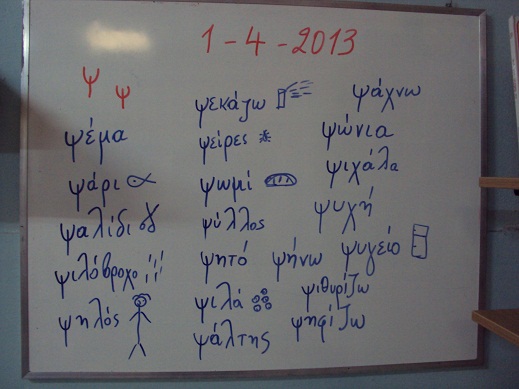 1-4-2013
Ψ ψ
ψέμα
ψάρι
ψαλίδι
ψιλόβροχο
ψηλός
ψεκάζω
ψείρες
ψωμί
ψύλλος
ψητό ψήνω
ψιλά
ψάλτης
ψάχνω
ψώνια
ψιχάλα
ψυχή
ψυγείο
ψιθυρίζω
ψηφίζω